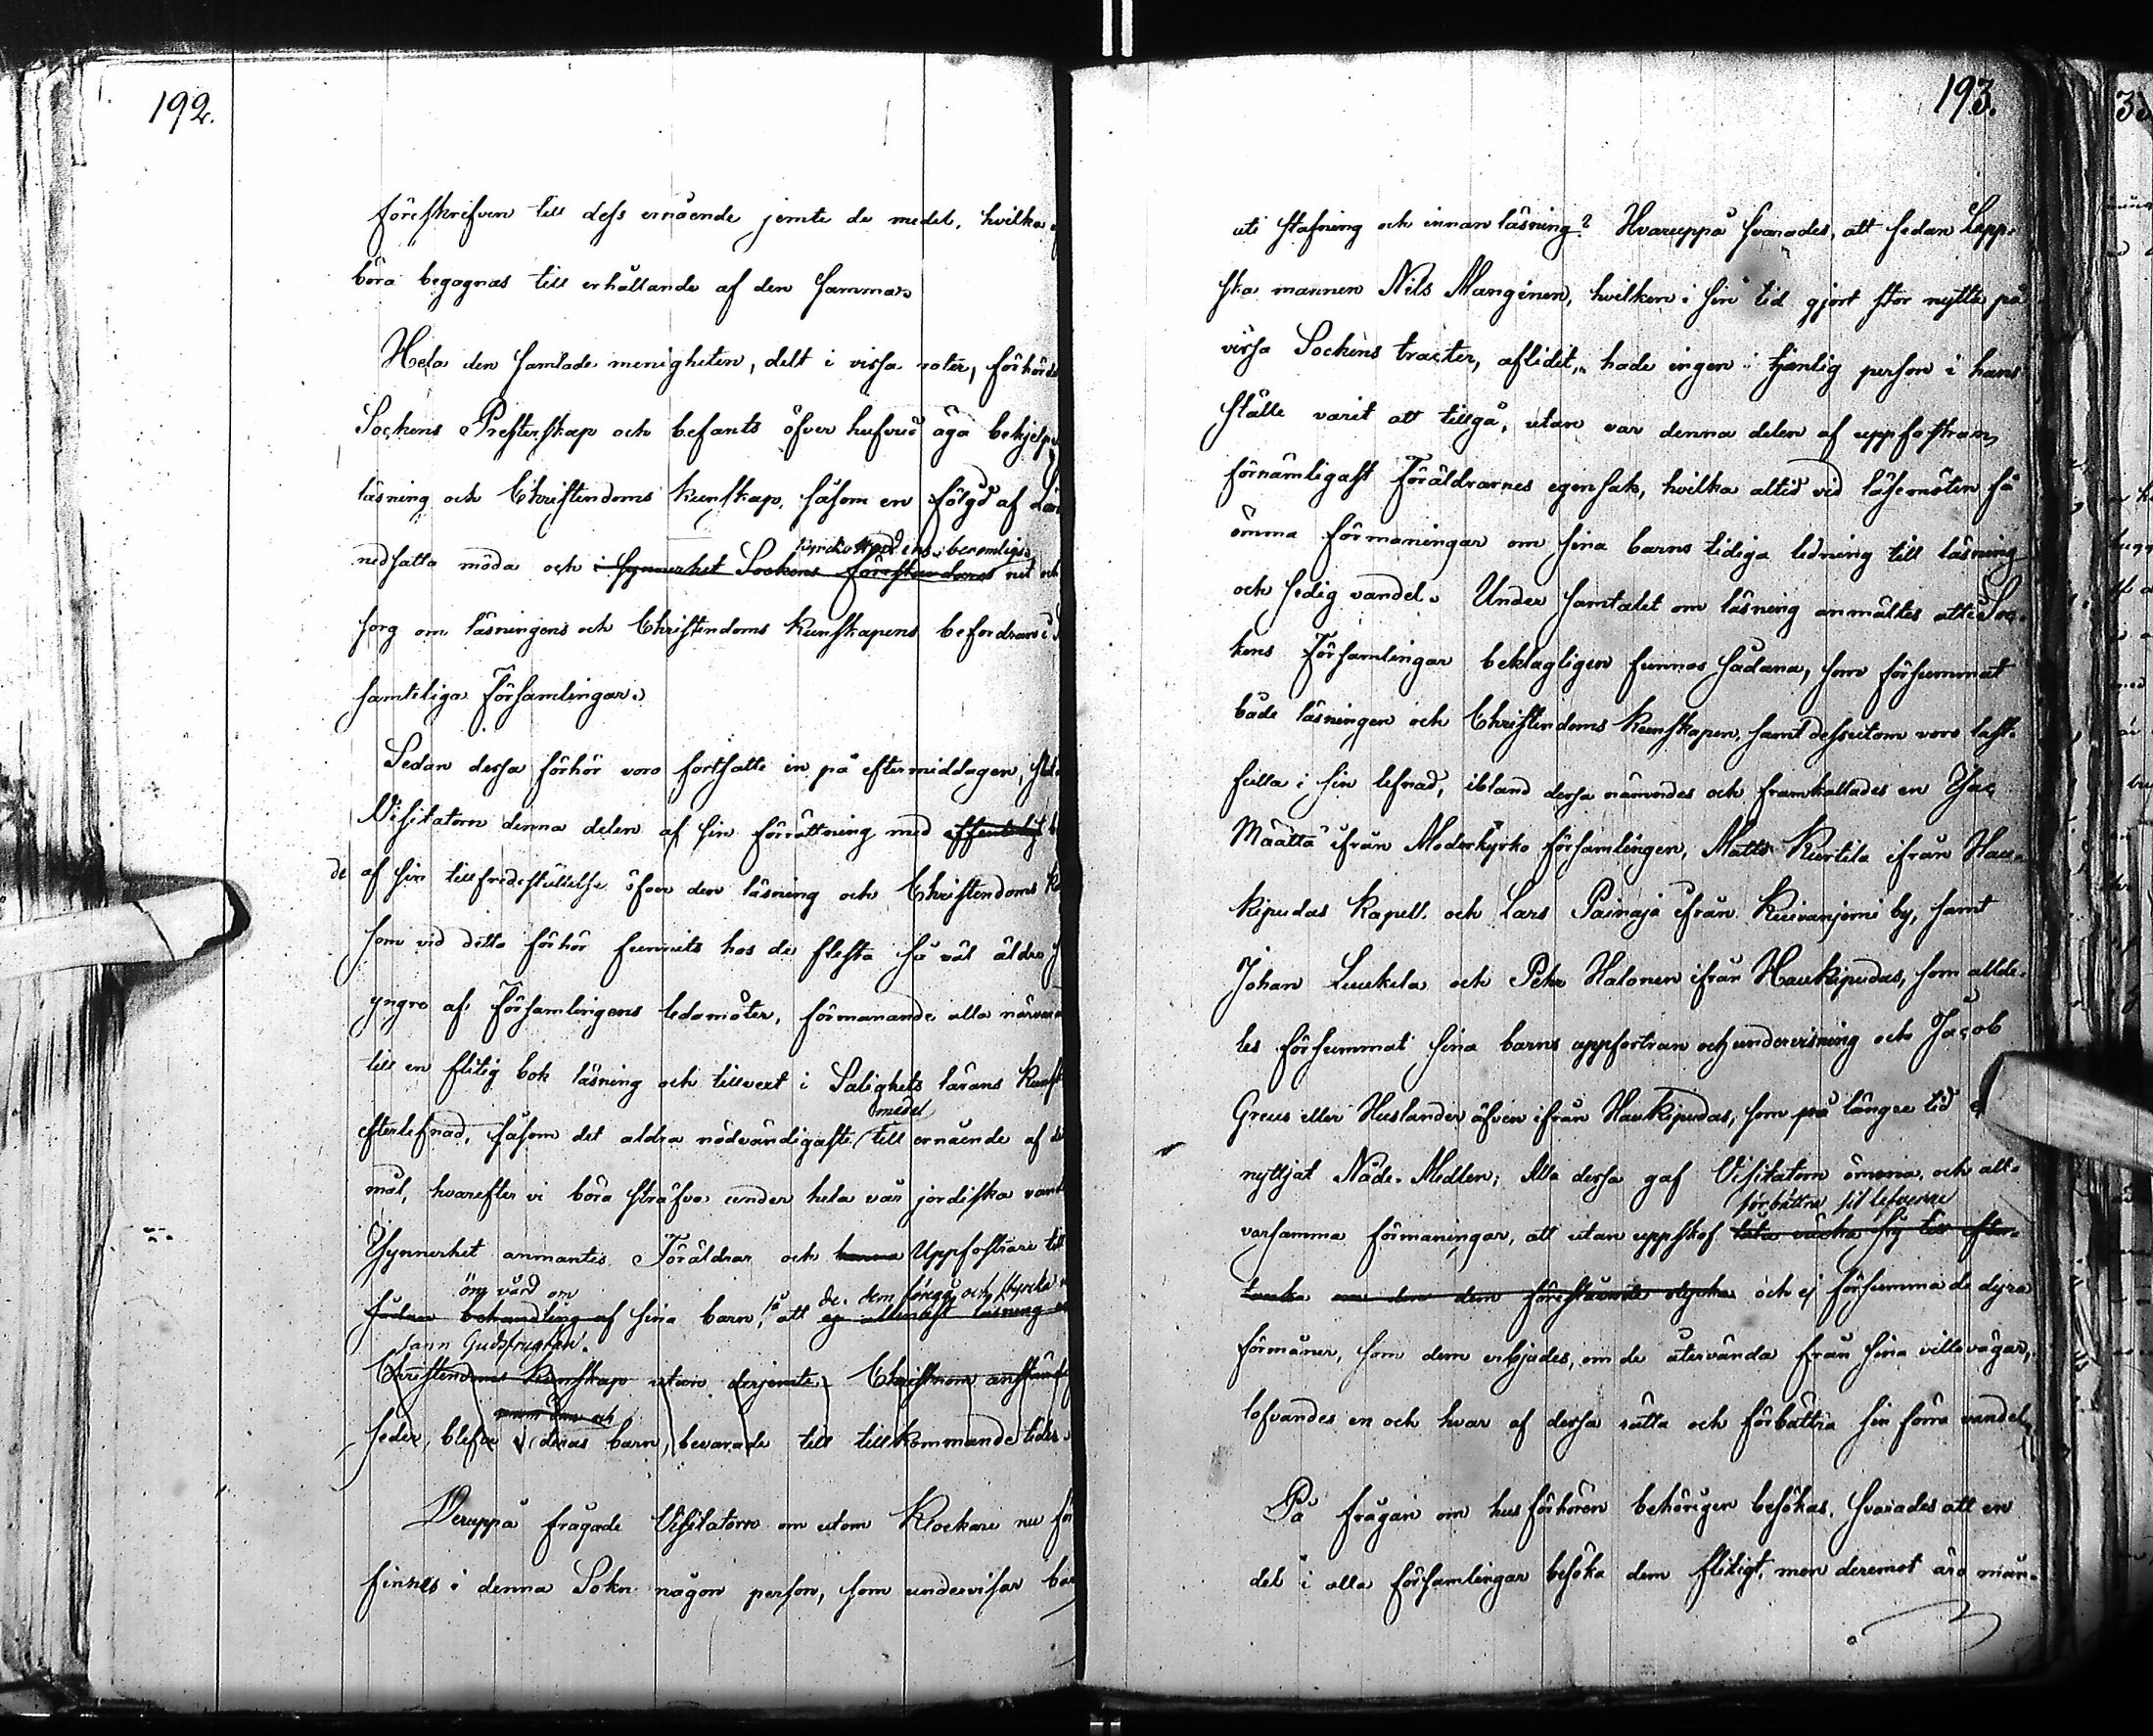 192.
föreskrifven till dess ernående jemte de medel, hvilka
böra begagnas till erhållande af den samma.
Hela den samlade menigheten, delt i vissa roter, förhörde
Sockens Presterskap och befants öfver hufvud äga behjelp
läsning och Christendoms kunskap, såsom en fölgd af
nedsatta möda och i synnerhet Sockens Föreståndares nit och
sorg om läsningens och Christendoms kunskapens befordran i
samteliga Församlingar.
Sedan dessa förhör voro fortsatte in på eftermiddagen,
Visitatorn denna delen af sin förrättning med offentelig
de af sin tillfredsställelse öfver den läsning och Christendoms
som vid detta förhör funnits hos de flesta så väl äldre
yngre af Församlingens ledamöter, förmanande alla närvara
till en flitig bok läsning och tillvext i Salighets lärans
medel
efterlefnad, såsom det aldra nödvändigaste till ernående af
mål, hvarefter vi böra sträfva under hela vår jordiska
Isynnerhet anmantes Föräldrar och Uppfostrare till
öm vård om de dem föregå och styrka
sådan behandling af sina barn, så att ej allenast läsning
sann Gudsfrugtan.
Christendoms kunskap utan derjemte Christnom anstän
seder, blefve deras barn, bevarade till tillkommande tider.
Deruppå frågade Visitatorn om utom Klockare nu
finnes i denna Sokn någon person, som undervisar
193.
uti stafning och innan läsning? Hvaruppå svarades, att sedan Lapp-
ska mannen Nils Manginen, hvilken i sin tid gjort stor nytta på
vissa Sockens tracter, aflidit, hade ingen tjenlig person i hans
ställe varit att tillgå, utan var denna delen af uppfostran
förnämligast Föräldrarnes egen sak, hvilka altid vid läsemöten få
ömma förmaningar om sina barns tidiga ledning till läsning
och sedig vandel. Under samtalet om läsning anmältes att i Soc-
kens Församlingar beklagligen funnos sådana, som försummat
både läsningen och Christendoms kunskapen, samt dessutom voro last-
fulla i sin lefnad, ibland dessa nämndes och framkallades en Isac
Määttä ifrån Moderkyrko församlingen, Matts Kurtila ifrån Hau-
kipudas Kapell och Lars Painaja ifrån Kuivanjemi by, samt
Johan Luukela och Pehr Halonen ifrån Haukipudas, som allde-
les försummat sina barns uppfostran och undervisning och Jacob
Greus eller Huslander äfven ifrån Haukipudas, som på längre tid ej
nyttjat Nåde-Medlen; Alla dessa gaf Visitatorn ömma och all-
förbättra sit lefverne
varsamma förmaningar, att utan uppskof låta väcka sig till efter-
tanka om den dem förestående olycka och ej försumma de dyra
förmåner, som dem erbjudes, om de återvända från sina villovägar,
lofvandes en och hvar af dessa rätta och förbättra sin förra vandel.
På frågan om hus förhören behörigen besökas, svarades att en
del i alla församlingar besöka dem flitigt, men deremot äro mån-